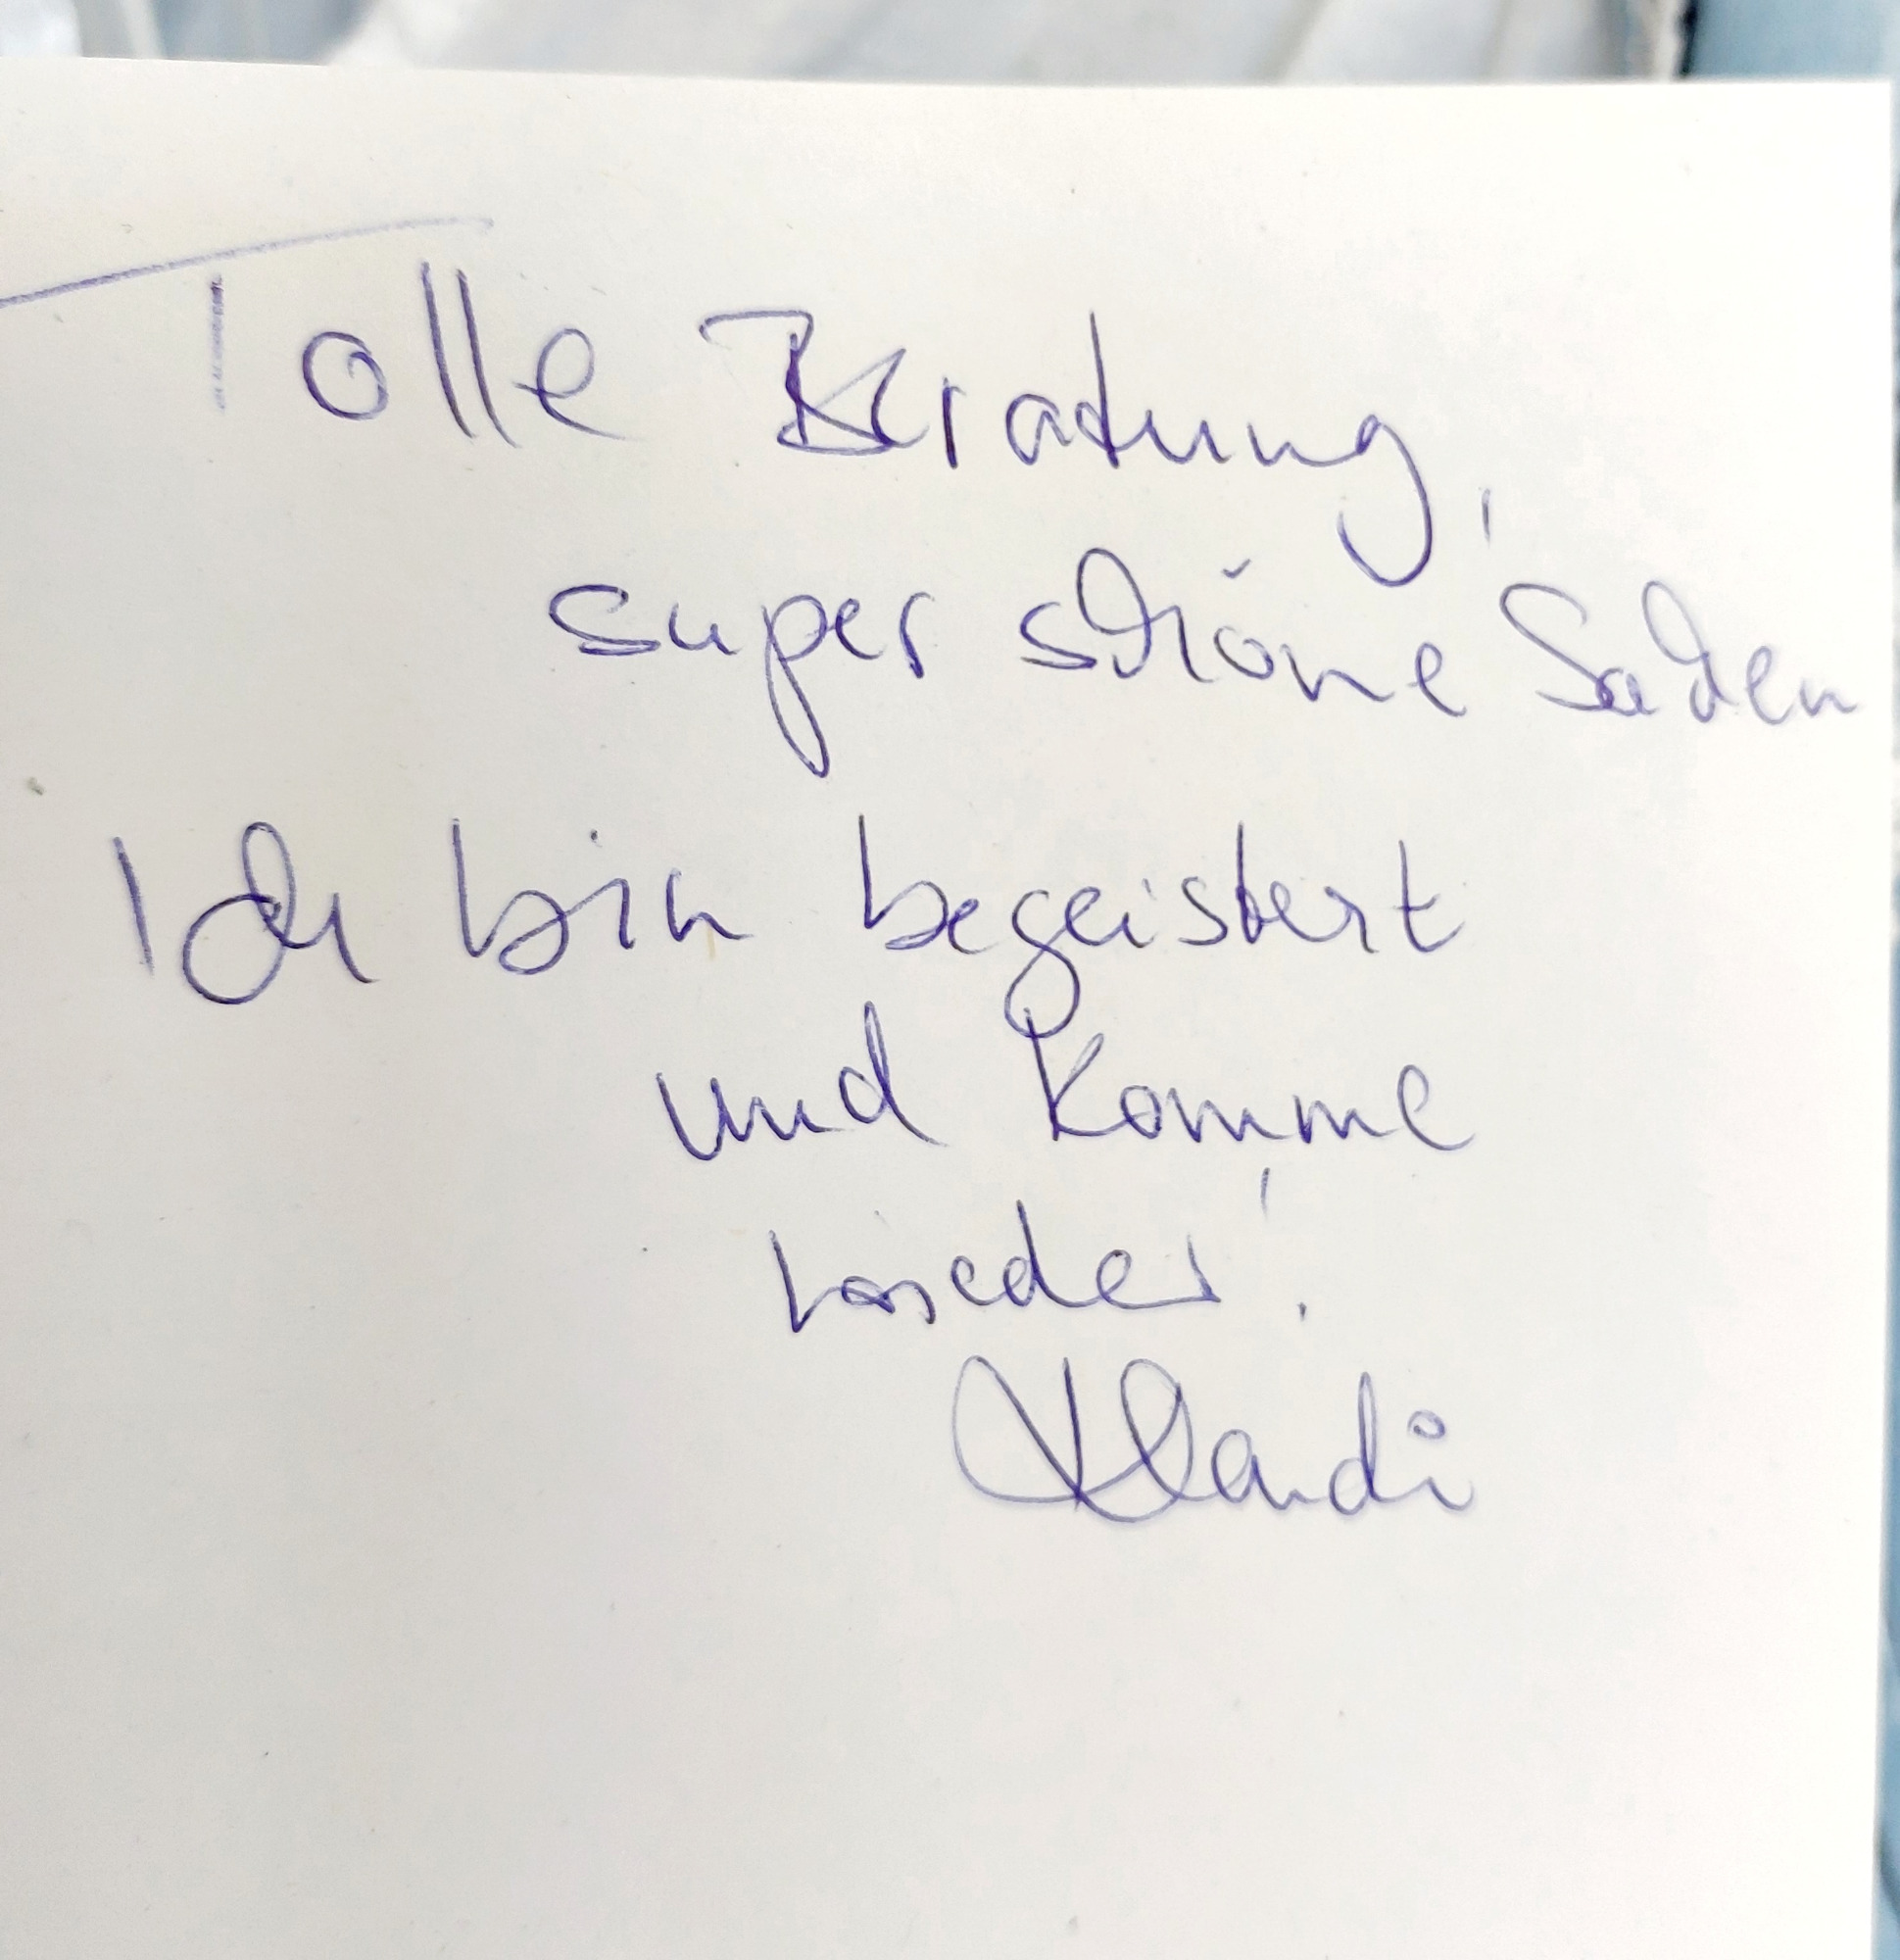 Tolle Beratung,
super schöne Sachen
Ich bin begeistert
und komme
wieder!
Klaudi